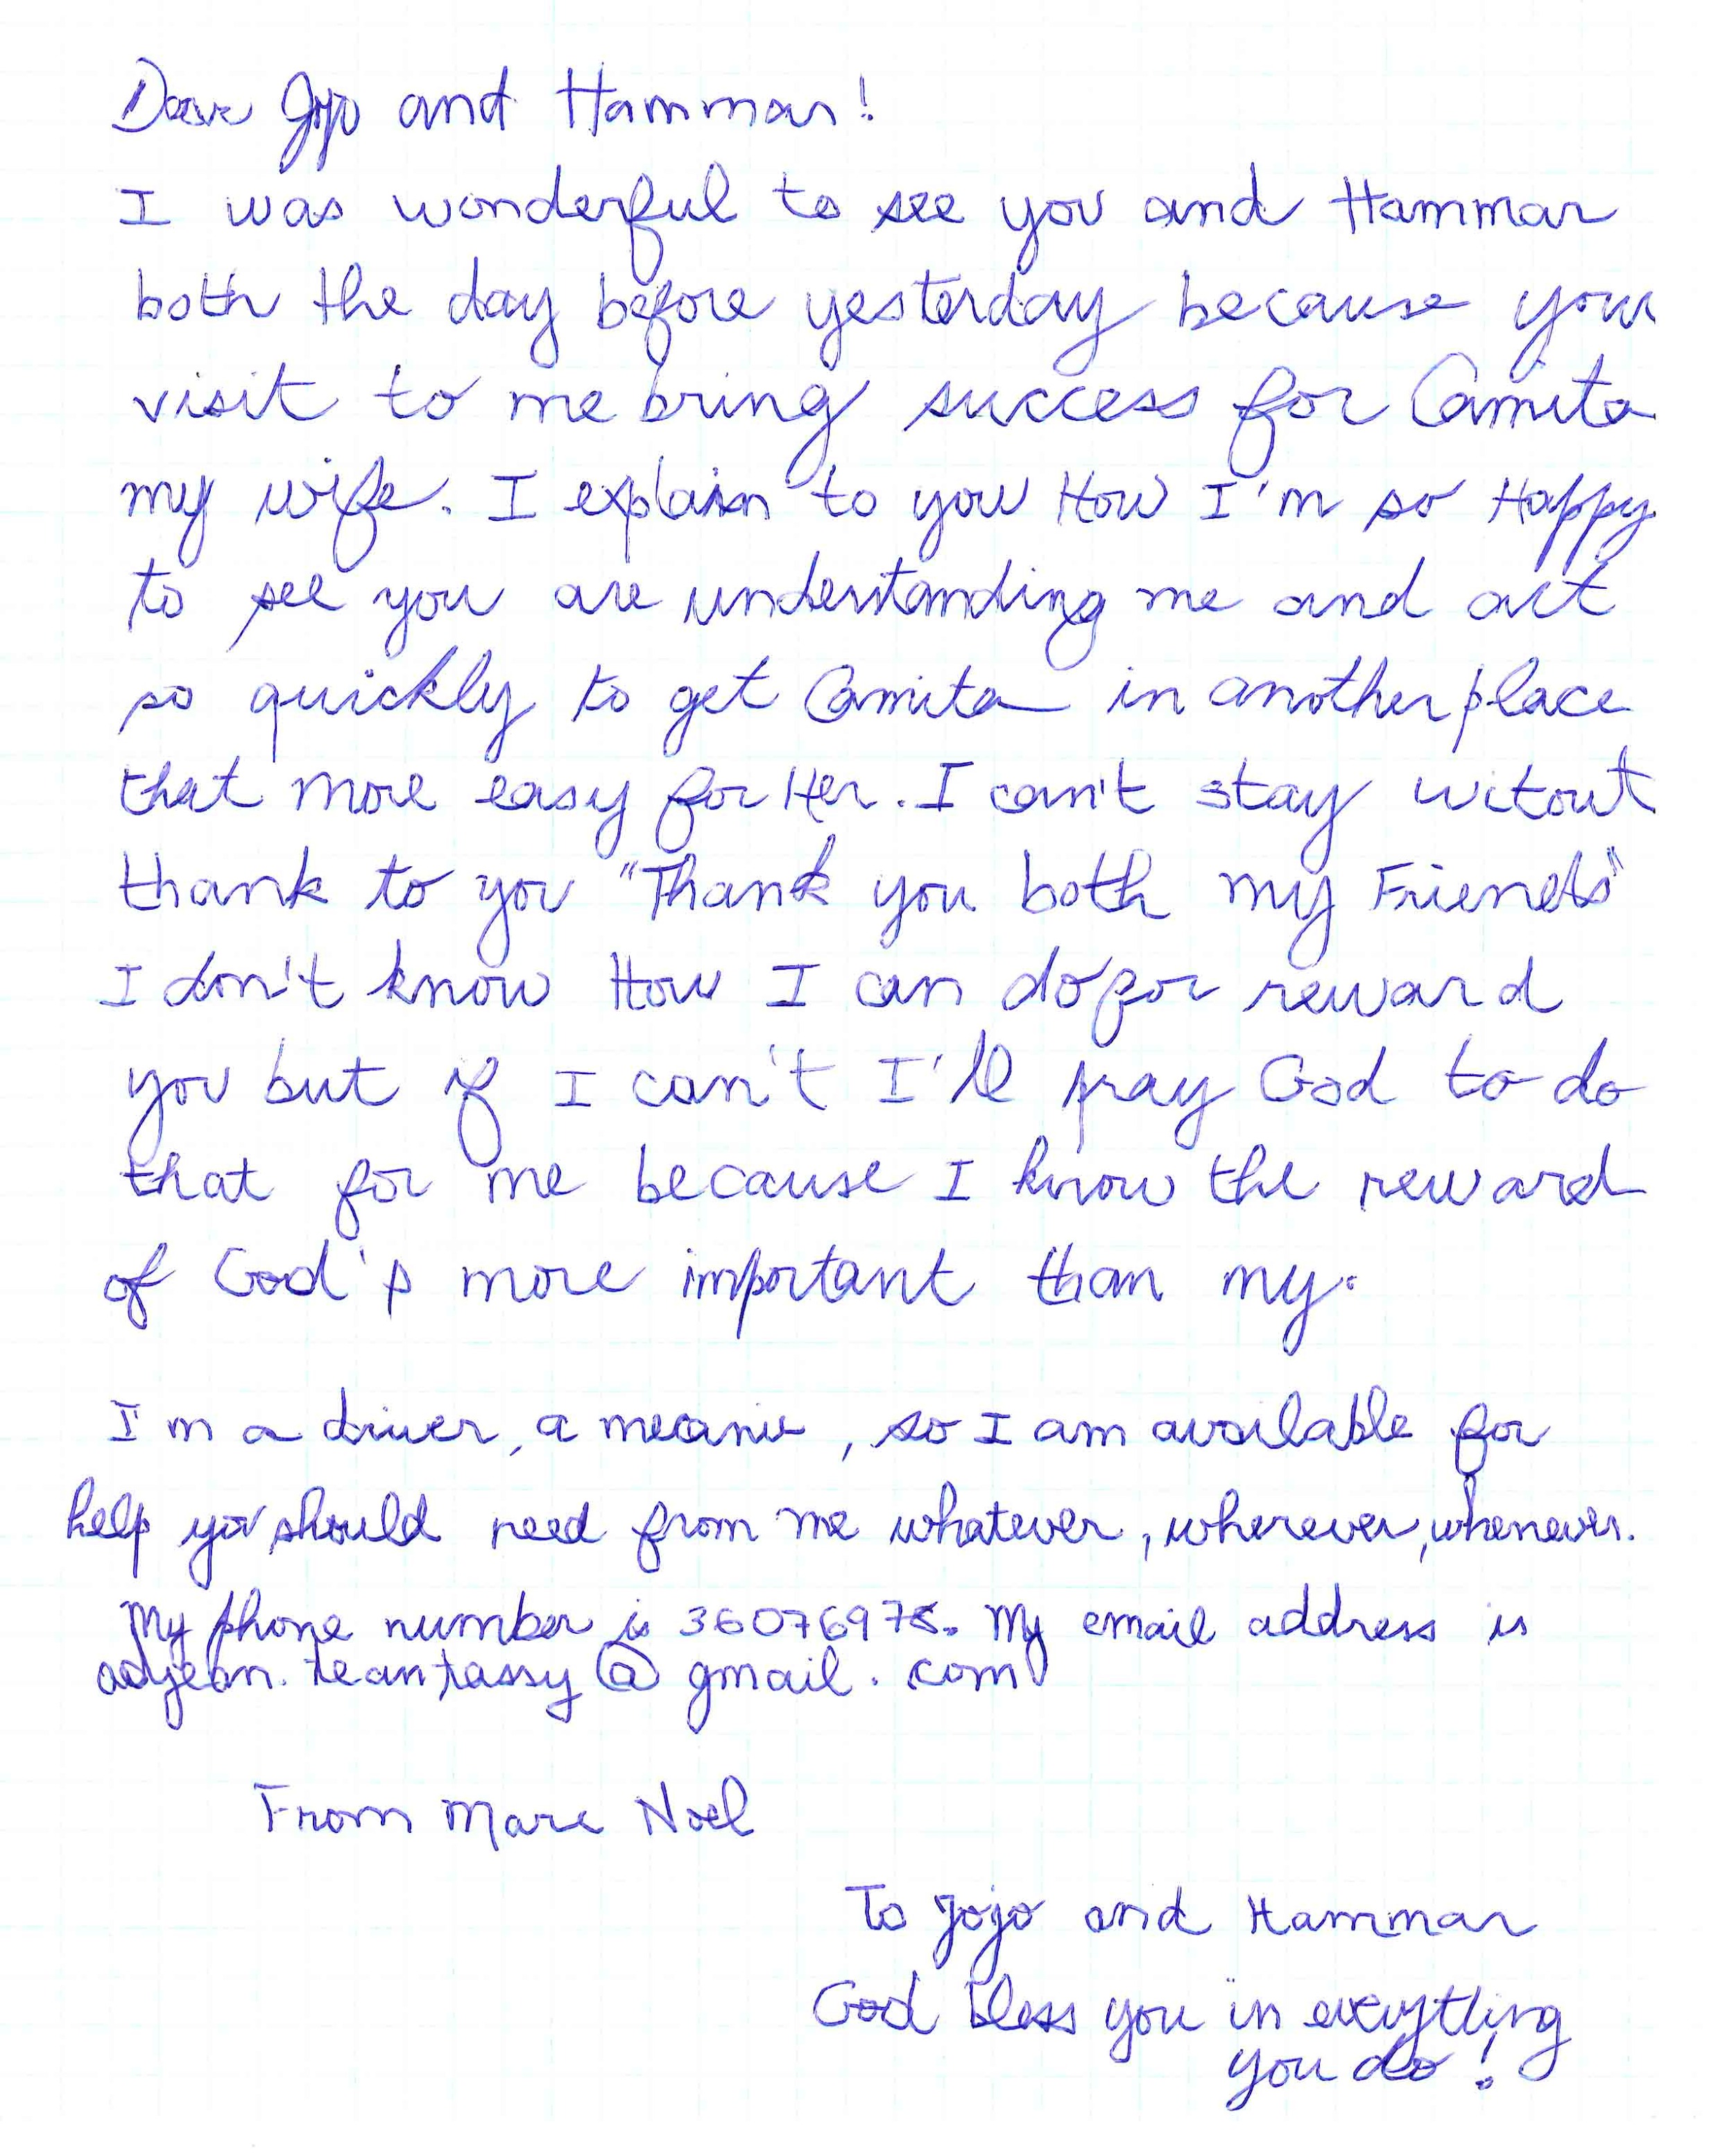 Dear Jojo and Hammar!
I was wonderful to see you and Hammar
both the day before yesterday because your
visit to me bring success for Camita
my wife. I explain to you How I'm so Happy
to see you are understanding me and act
so quickly to get Camita in another place
that more easy for Her. I can't stay witout
thank to you "Thank you both my Friends"
I don't know How I can do for reward
you but if I can't I'll pray God to do
that for me because I know the reward
of God's more important than my.
I'm a driver, a , so I am available for
help you should need from me whatever, wherever, whenever.
My phone number is My email address is
@gmail.com
From Marc Noel
To Jojo and Hammar
God bless you in everything
you do!